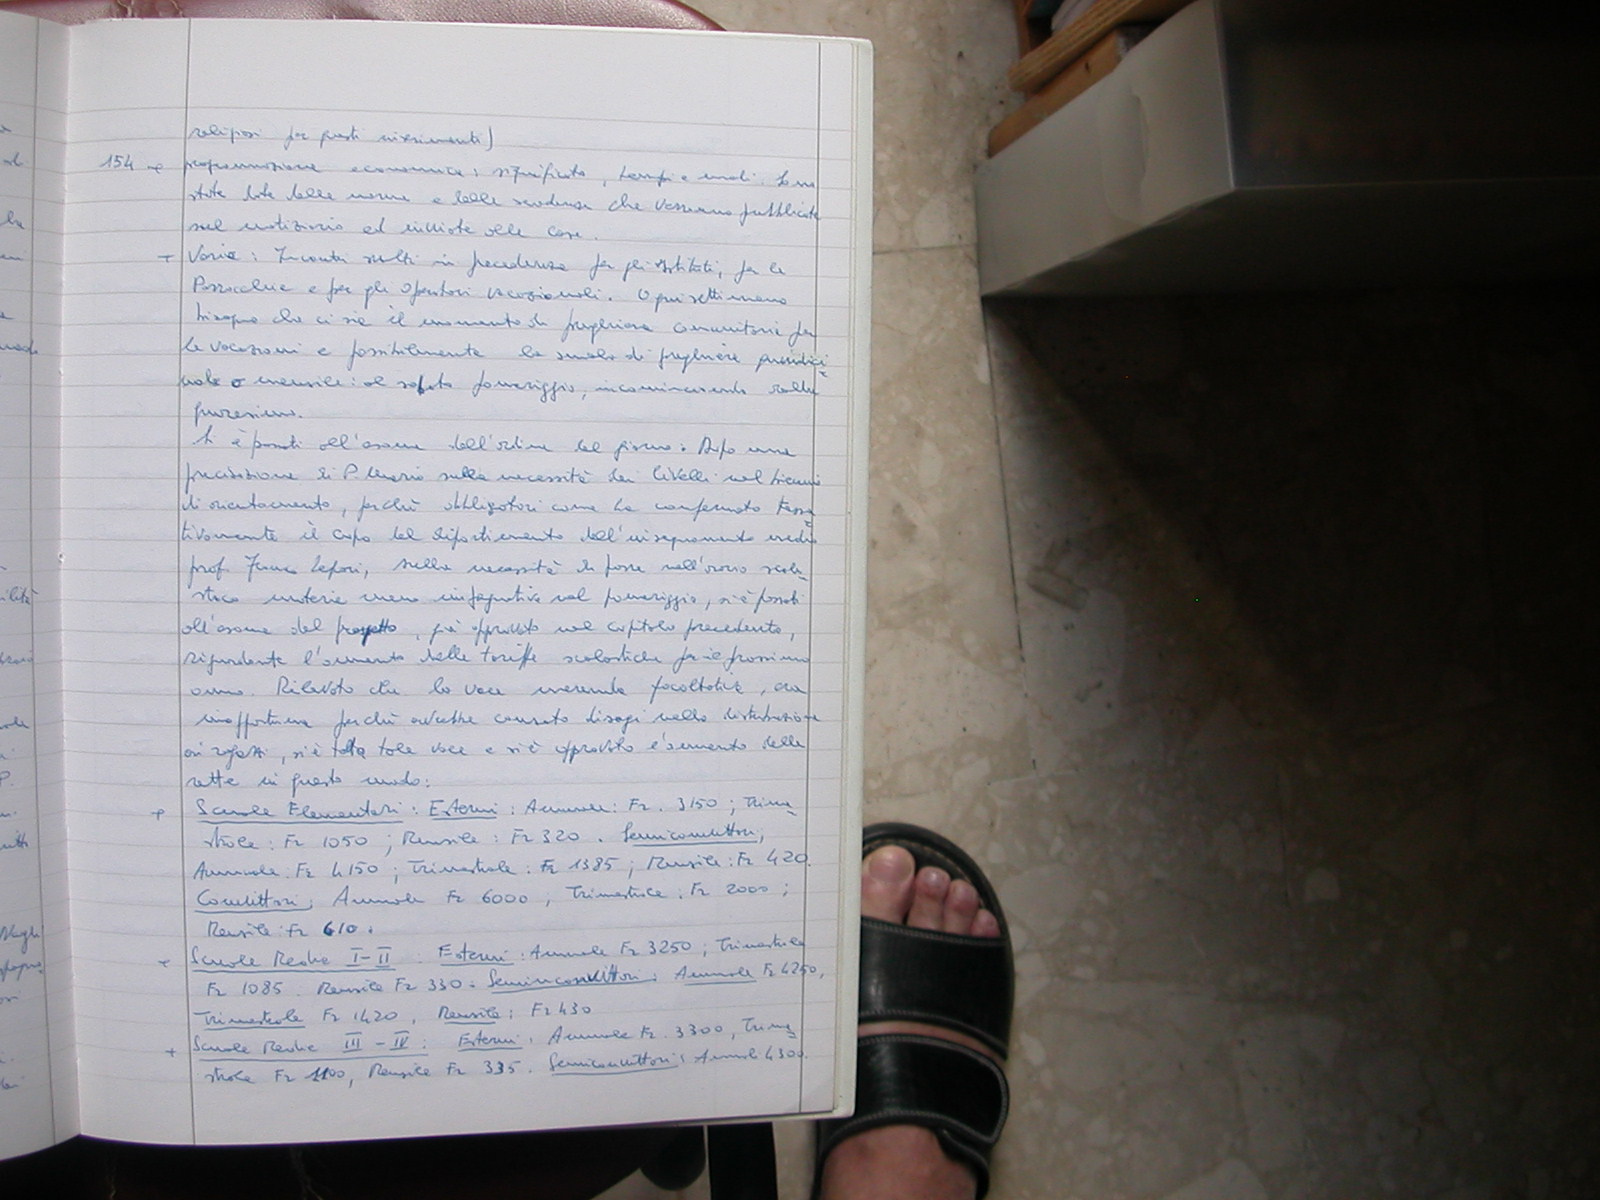 religiosi per questi inserimenti)
154 - programmazione economica: significato, tempi e modi. Sono
state date delle norme e delle scadenze che verranno pubblicate
sul notiziario ed inviate alle case.
- Varie: Incontri svolti in precedenza per gli Istituti, per le
Parrocchie e per gli Operatori vocazionali. Ogni settimana
bisogna che ci sia il momento di preghiera comunitaria per
le vocazioni e possibilmente la scuola di preghiera quindici
nale o mensile: al sabato pomeriggio, incominciando
Si è passati all'esame dell'ordine del giorno: Dopo una
precisazione di P. Mario sulla necessità dei livelli nel biennio
di orientamento, perché obbligatori come ha confermato tassa
tivamente il capo del dipartimento dell'insegnamento medio
prof. Lepori, sulla necessità di porre nell'orario scola
stico materie meno impegnative nel pomeriggio, si è passati
all'esame del progetto, già approvato nel capitolo precedente,
riguardante l'aumento delle tariffe scolastiche per il prossimo
anno. Rilevato che la voce merenda facoltativa, era
inopportuna perché avrebbe causato disagi nella distribuzione
ai ragazzi, si è tolta tale voce e si è approvato l'aumento delle
rette in questo modo:
+ Scuole Elementari: Esterni: Annuale: Fr. 3150; Trime
strale: Fr 1050; Mensile: Fr 320. Semiconvittori,
Annuale: Fr 4150; Trimestrale: Fr 1385; Mensile: Fr 420.
Convittori, Annuale Fr 6000, Trimestrale: Fr 2000;
Mensile: Fr 610.
- Scuole Medie I-II: Esterni: Annuale Fr 3250; Trimestrale
Fr 1085. Mensile Fr 330. Semiconvittori: Annuale Fr 4250,
Trimestrale Fr 1420, Mensile: Fr 430
+ Scuole Medie III-IV: Esterni: Annuale Fr. 3300, Trime
strale Fr 1100, Mensile Fr 335. Semiconvittori: Annuale 4300.